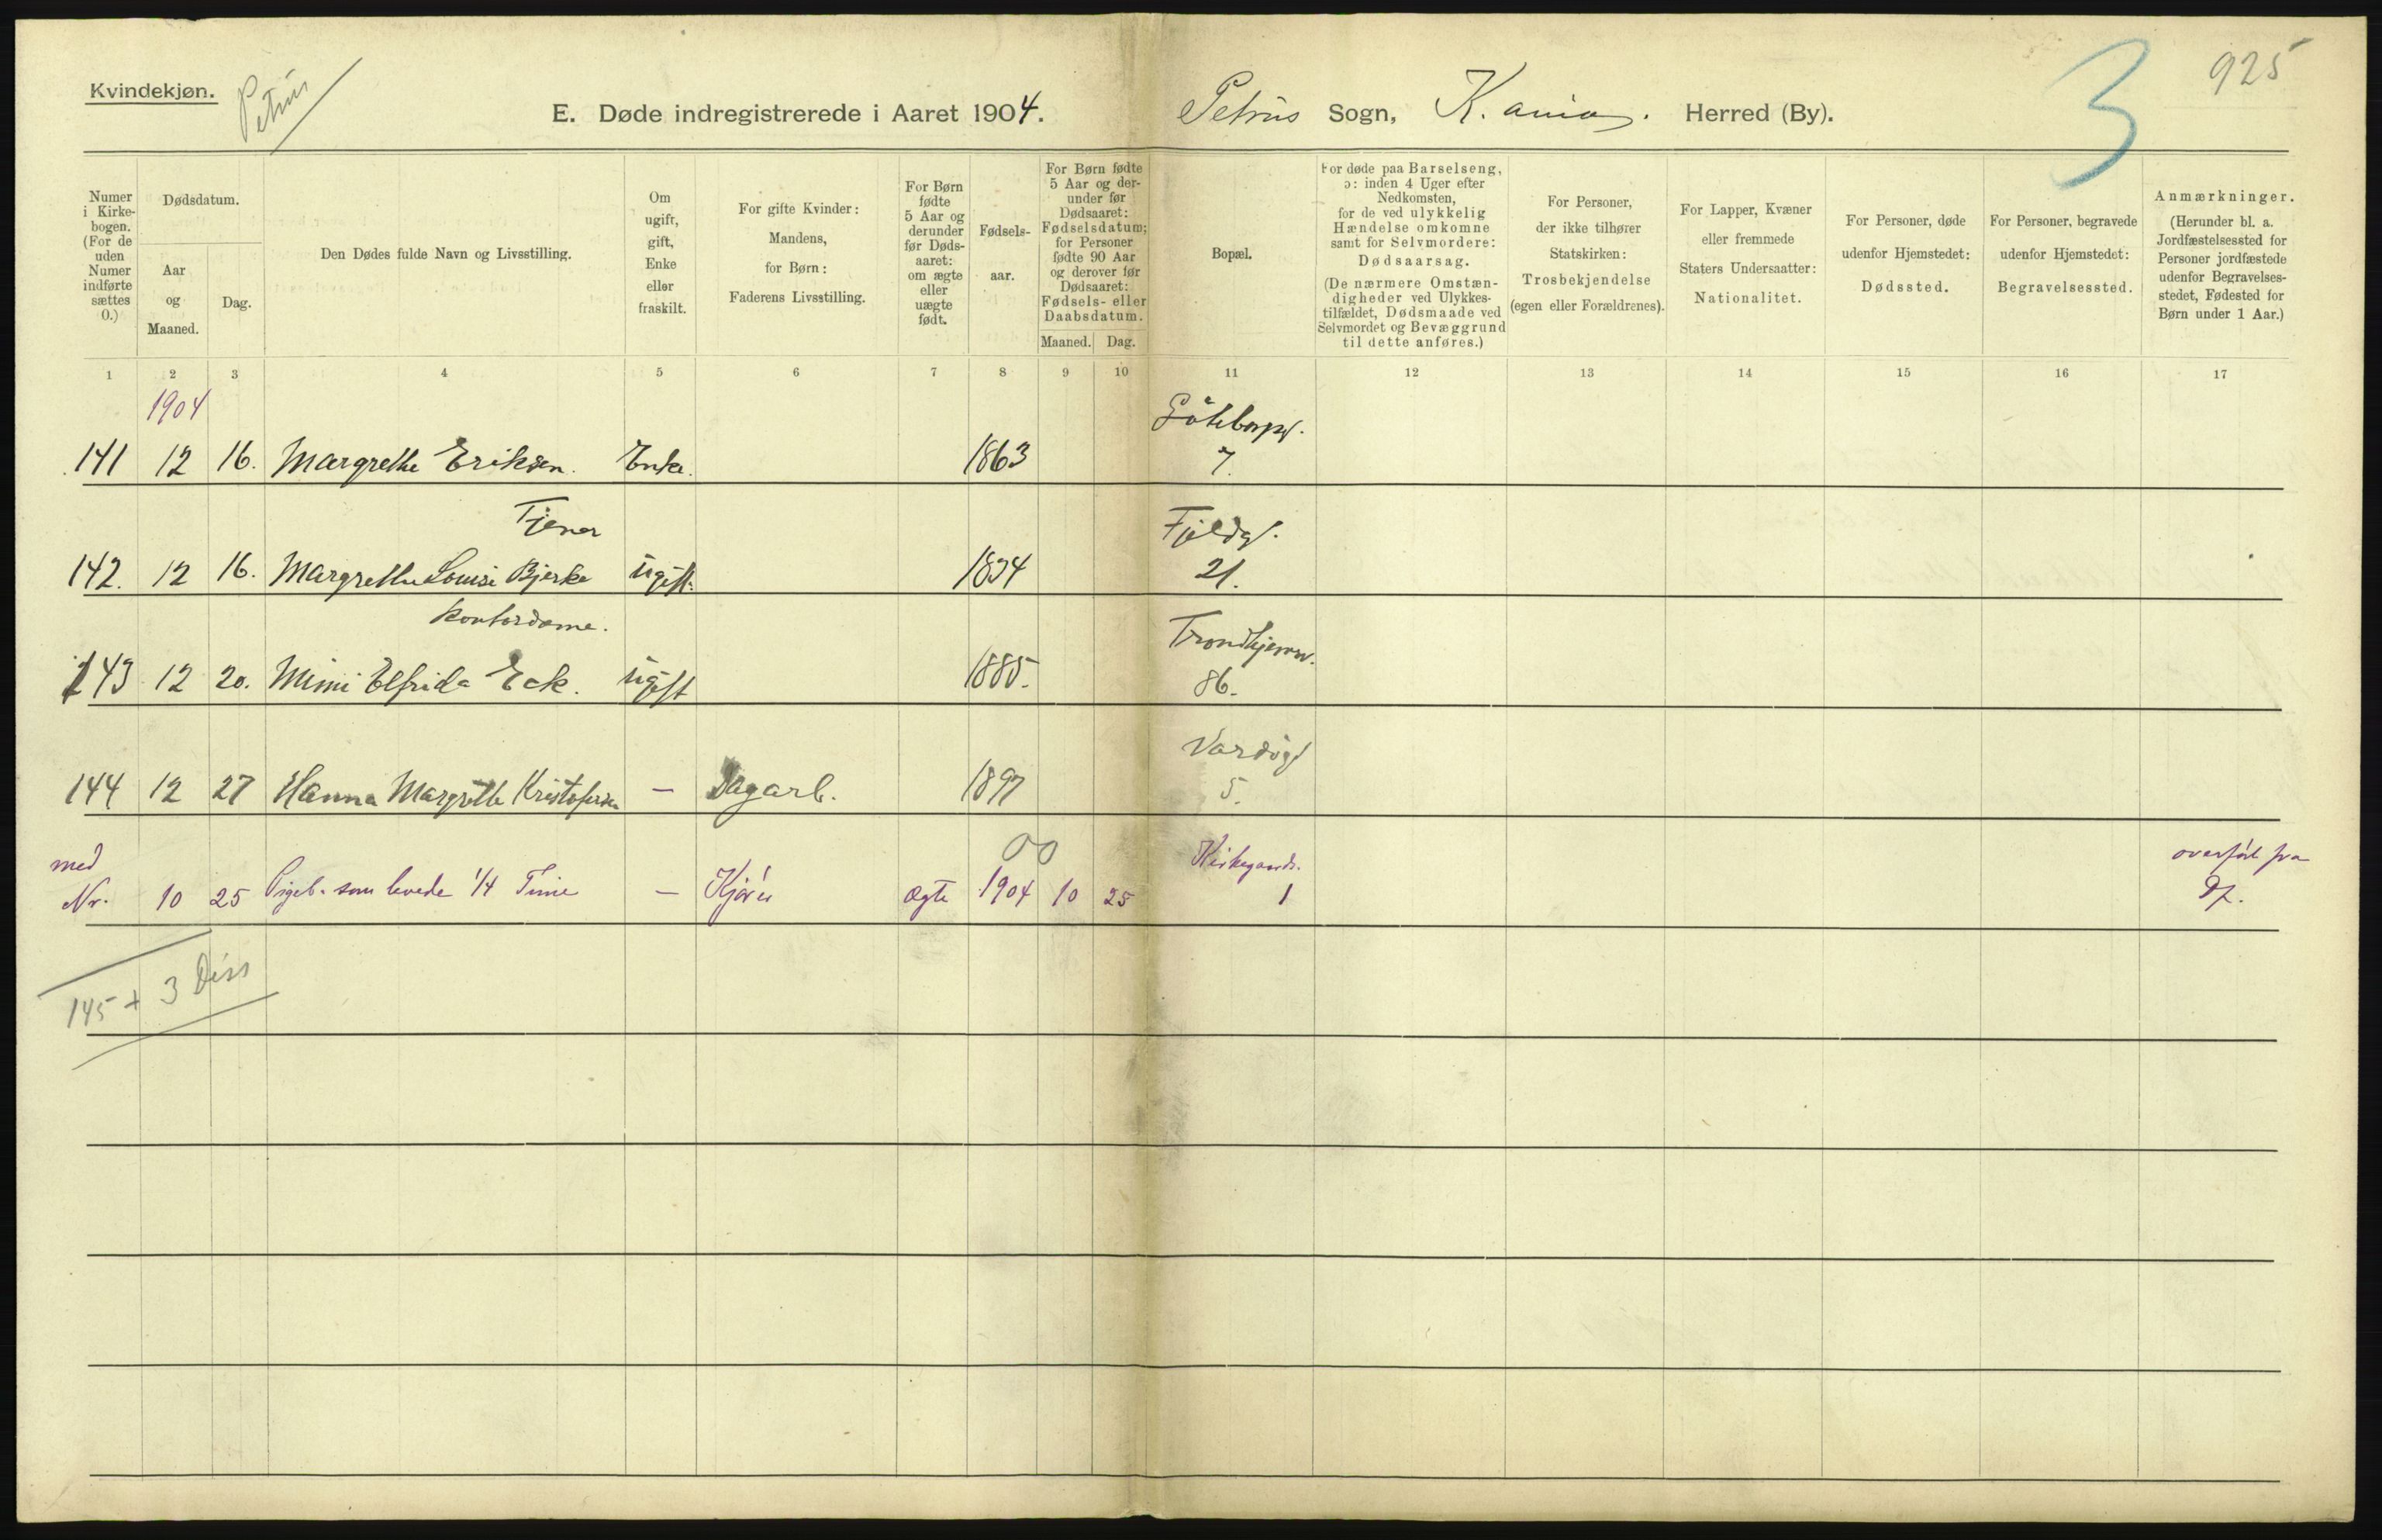 Kvindekjøn.
Petrus
E. Døde indregistrerede i Aaret 1904.
Petrus Sogn, K.ania. Herred (By).
3
925
Numer i Kirkebogen. (For de uden Numer indførte sættes 0.)
Dødsdatum.
Aar og Maaned.
Dag.
Den Dødes fulde Navn og Livsstilling.
Om ugift, gift, Enke eller fraskilt.
For gifte Kvinder: Mandens, for Børn: Faderens Livsstilling.
For Børn fødte 5 Aar og derunder før Dødsaaret: om ægte eller uægte født.
Fødselsaar.
For Børn fødte 5 Aar og derunder før Dødsaaret: Fødselsdatum; for Personer fødte 90 Aar og derover før Dødsaaret: Fødsels- eller Daabsdatum.
Maaned. Dag.
Bopæl.
For døde paa Barselseng, ɔ: inden 4 Uger efter Nedkomsten, for de ved ulykkelig Hændelse omkomne samt for Selvmordere: Dødsaarsag.
(De nærmere Omstændigheder ved Ulykkestilfældet, Dødsmaade ved Selvmordet og Bevæggrund til dette anføres.)
For Personer, der ikke tilhører Statskirken: Trosbekjendelse (egen eller Forældrenes).
For Lapper, Kvæner eller fremmede Staters Undersaatter: Nationalitet.
For Personer, døde udenfor Hjemstedet: Dødssted.
For Personer, begravede udenfor Hjemstedet: Begravelsessted.
Anmærkninger.
(Herunder bl. a. Jordfæstelsessted for Personer jordfæstede udenfor Begravelsesstedet, Fødested for Børn under 1 Aar.)
1 2 3 4 5 6 7 8 9 10 11 12 13 14 15 16 17
1904
Göteborgg.
141 12 16. Margrethe Eriksen. Enke. 1863 7.
Tjener Fjeldg.
142. 12 16. Margrethe Louise Bjerke ugift. 1834 21.
Kontordame. Trondhjemsv.
143 12 20. Mimi Elfrida Eck. ugift 1885. 86.
Vardøg
144 12 27 Hanna Margrethe Kristofersen — Dagarb. 1897 5.
med 00 Kirkegaards. overført fra
Nr. 10 25 Pigeb. som levede 1/4 Time — Kjører ægte 1904 10 25 1 Df.
145 + 3 Diss